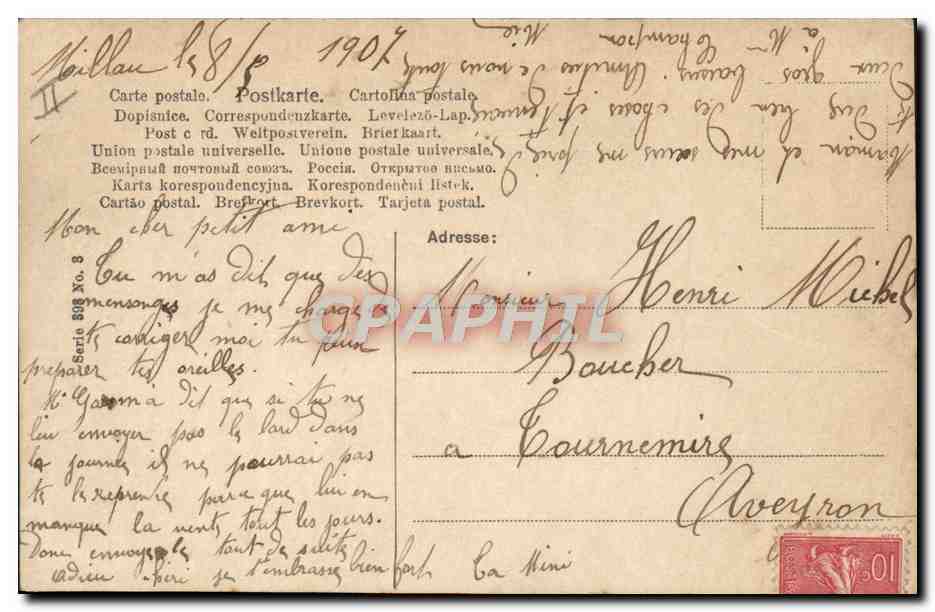 Millau le 8/9 1907
II
Carte postale. Postkarte. Cartolina postale.
Dopisnice. Correspondenzkarte. Levelező-Lap.
Post c rd. Weltpostverein. Briefkaart.
Union postale universelle. Unione postale universale.
Всемірный почтовый союзъ. Россія. Открытое письмо.
Karta korespondencyjna. Korespondenční lístek.
Cartão postal. Brefkort. Brevkort. Tarjeta postal.
Serie 898 No. 3
Mon cher petit ami
Tu m'as dit que des
mensonges je me charge de
te corriger moi tu peux
preparer tes oreilles.
dit que si tu ne
lui envoyer pas le lard dans
la journée il ne pourrai pas
te le reprendre parce que lui en
manque la vente tout les jours.
Donc envoye le tout de suite
adieu chéri je t'embrasse bien fort Ta Mini
Maman et mes sœurs me prie de
te dire bien des choses et t'envoie
deux gros baisers. Amitiés de nous toute
à Mme Champion
Mie
Adresse:
Monsieur Henri Michel
Boucher
a Tournemire
Aveyron
10c
CPAPHIL